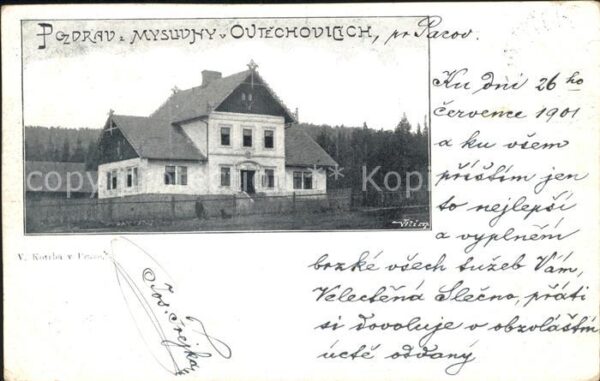 POZDRAV z MYSLIVNY v OUTĚCHOVICÍCH, pr Pacov.
Ku dni 26 ho
července 1901
a ku všem
příštím jen
to nejlepší
a vyplněm
brzké všech tužeb Vám,
Velectěná Slečno, přáti
si dovoluje v obzvláštní
úctě oddaný
Jos. Trejka
V. Kotrba v
copyright